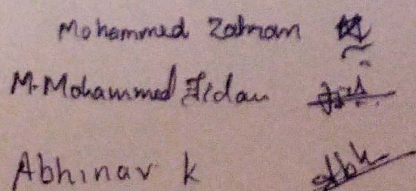 Mohammed Zahran
M. Mohammed Fidan
Abhinav K